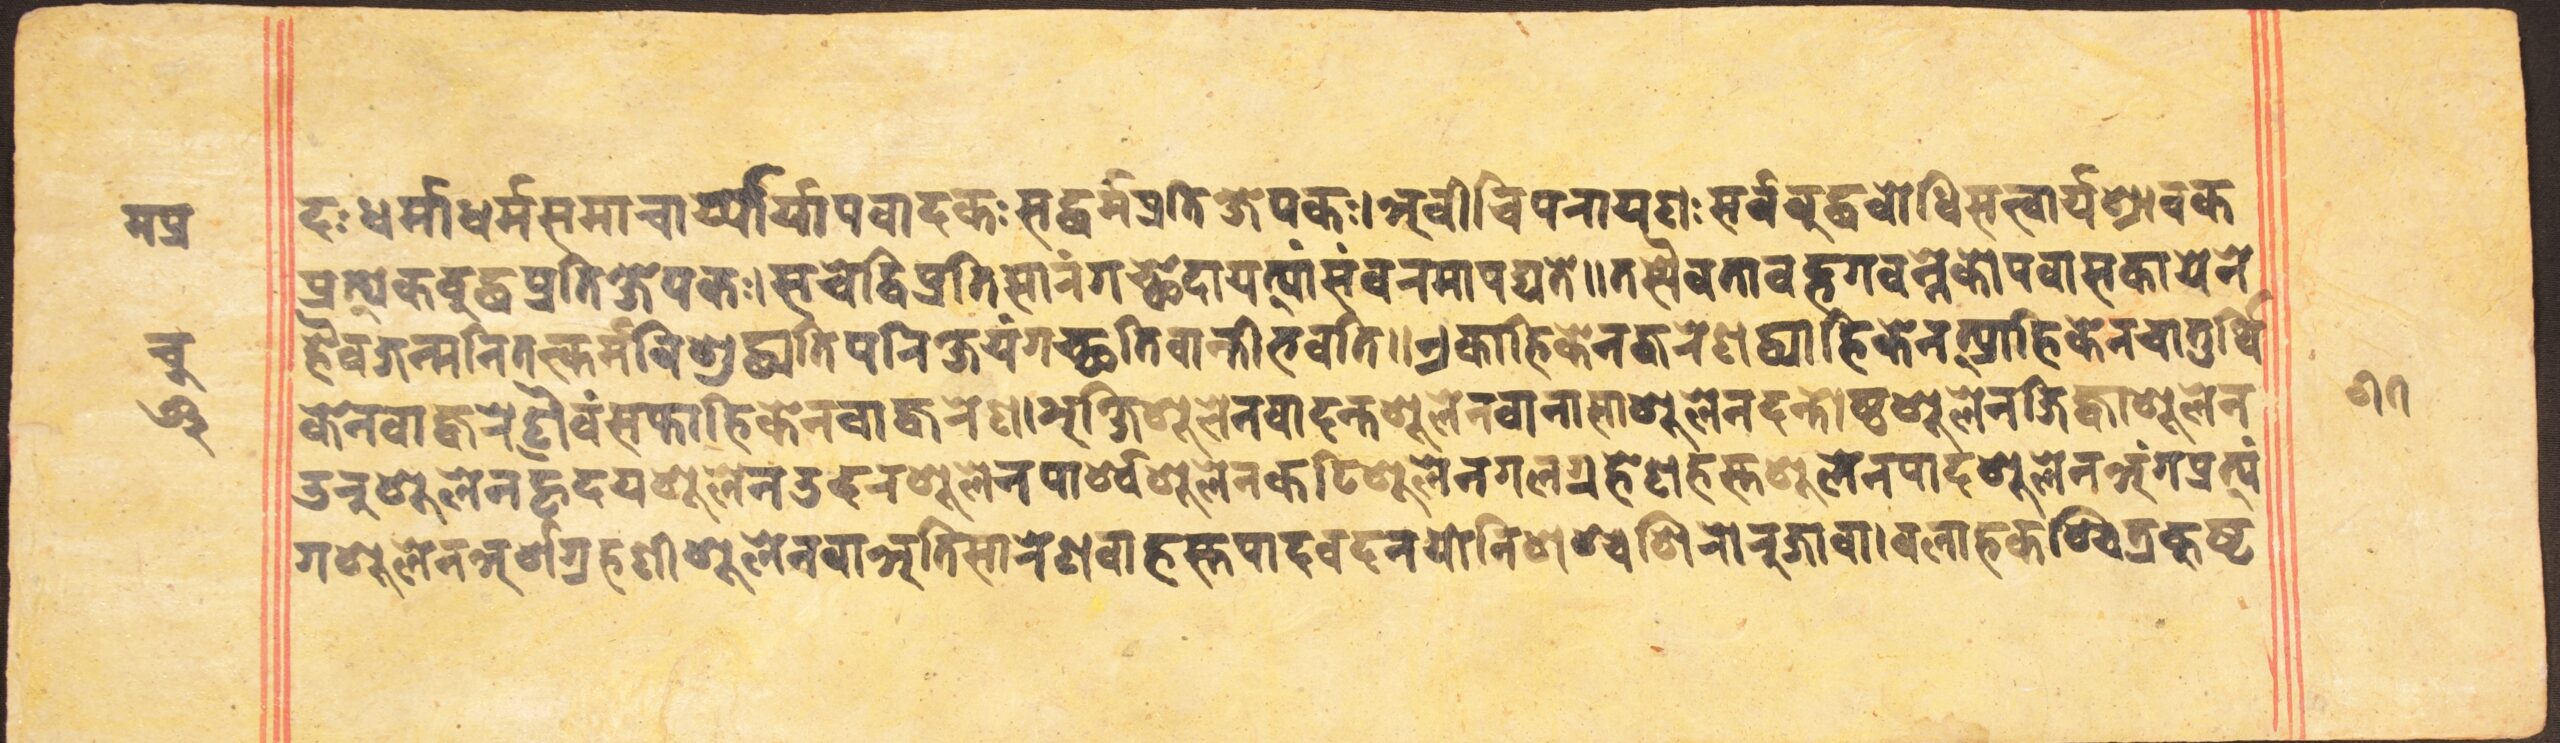 मप्र
दः धर्माधर्मसमाचार्य्यौर्यापवादकः सद्धर्मप्रतिक्षेपकः। अवीचिपरायणः सर्वबुद्धबोधिसत्वार्यश्रावक
प्रत्यकबुद्धप्रतिक्षेपकः। सचेद्विप्रतिसारंगच्छेदायत्यांसंवरमापद्यते॥ तस्यैवतावद्भगवन्नेकोपवासकायेने
हैवजन्मनितत्कर्मविशुद्ध्यतिपरिक्षयंगच्छतिवान्तीभवति॥ एकाहिकेनज्वरेणद्व्याहिकेनत्र्याहिकेनचातुर्थि
केनवाज्वरेणैवंसप्ताहिकेनवाज्वरेण। अक्षिशूलेनवादन्तशूलेनवानासाशूलेनदन्तोष्ठशूलेनजिह्वाशूलेन
उरुशूलेनहृदयशूलेनउदरशूलेनपार्श्वशूलेनकटिशूलेनगलग्रहेणहस्तशूलेनपादशूलेनअंगप्रत्यं
गशूलेनअर्शग्रहणीशूलेनवाअतिसारेणवाहस्तपादवदनयोनिशश्चेशिरोरुजावा। वलाहकश्चित्रकुष्ट